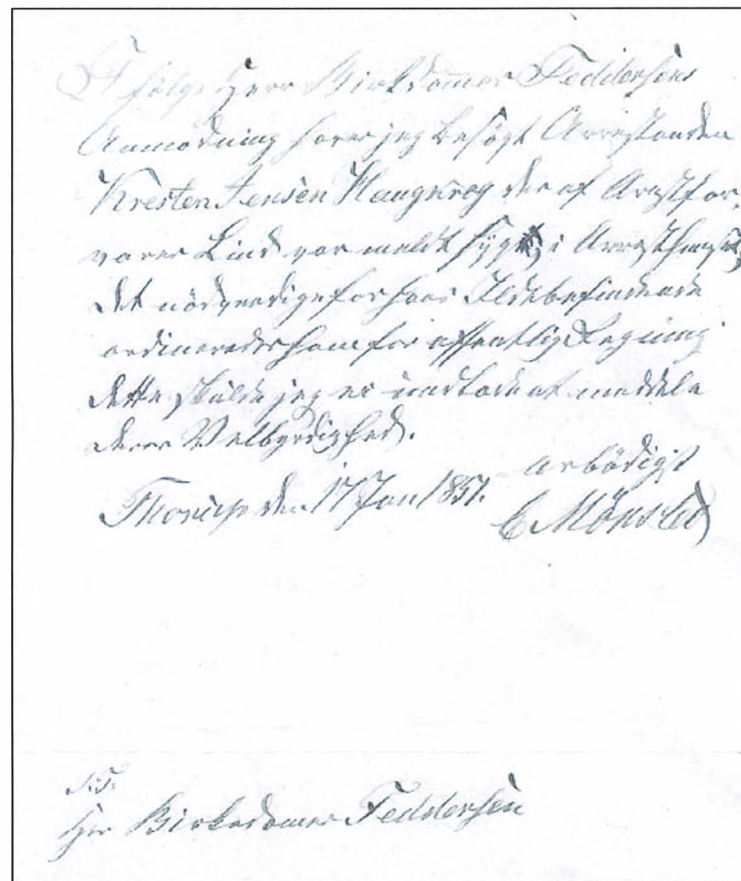 I følge Herr Birkdommer Feddersens
Anmodning haver jeg besøgt Arrestanden
Kresten Jensen Haugkrog der af Arrestfor-
varer Lind var meldt syg i Arresthuset,
det nødvendige for hans Ildebefindende
ordineredes ham for offentlig Regning
dette skulde jeg ei undlade at meddele
Deres Velbyrdighed.
Ærbødigst
Thorup den 17 Jan 1851.
C Mønsted
S.T.
Hr Birkedommer Feddersen